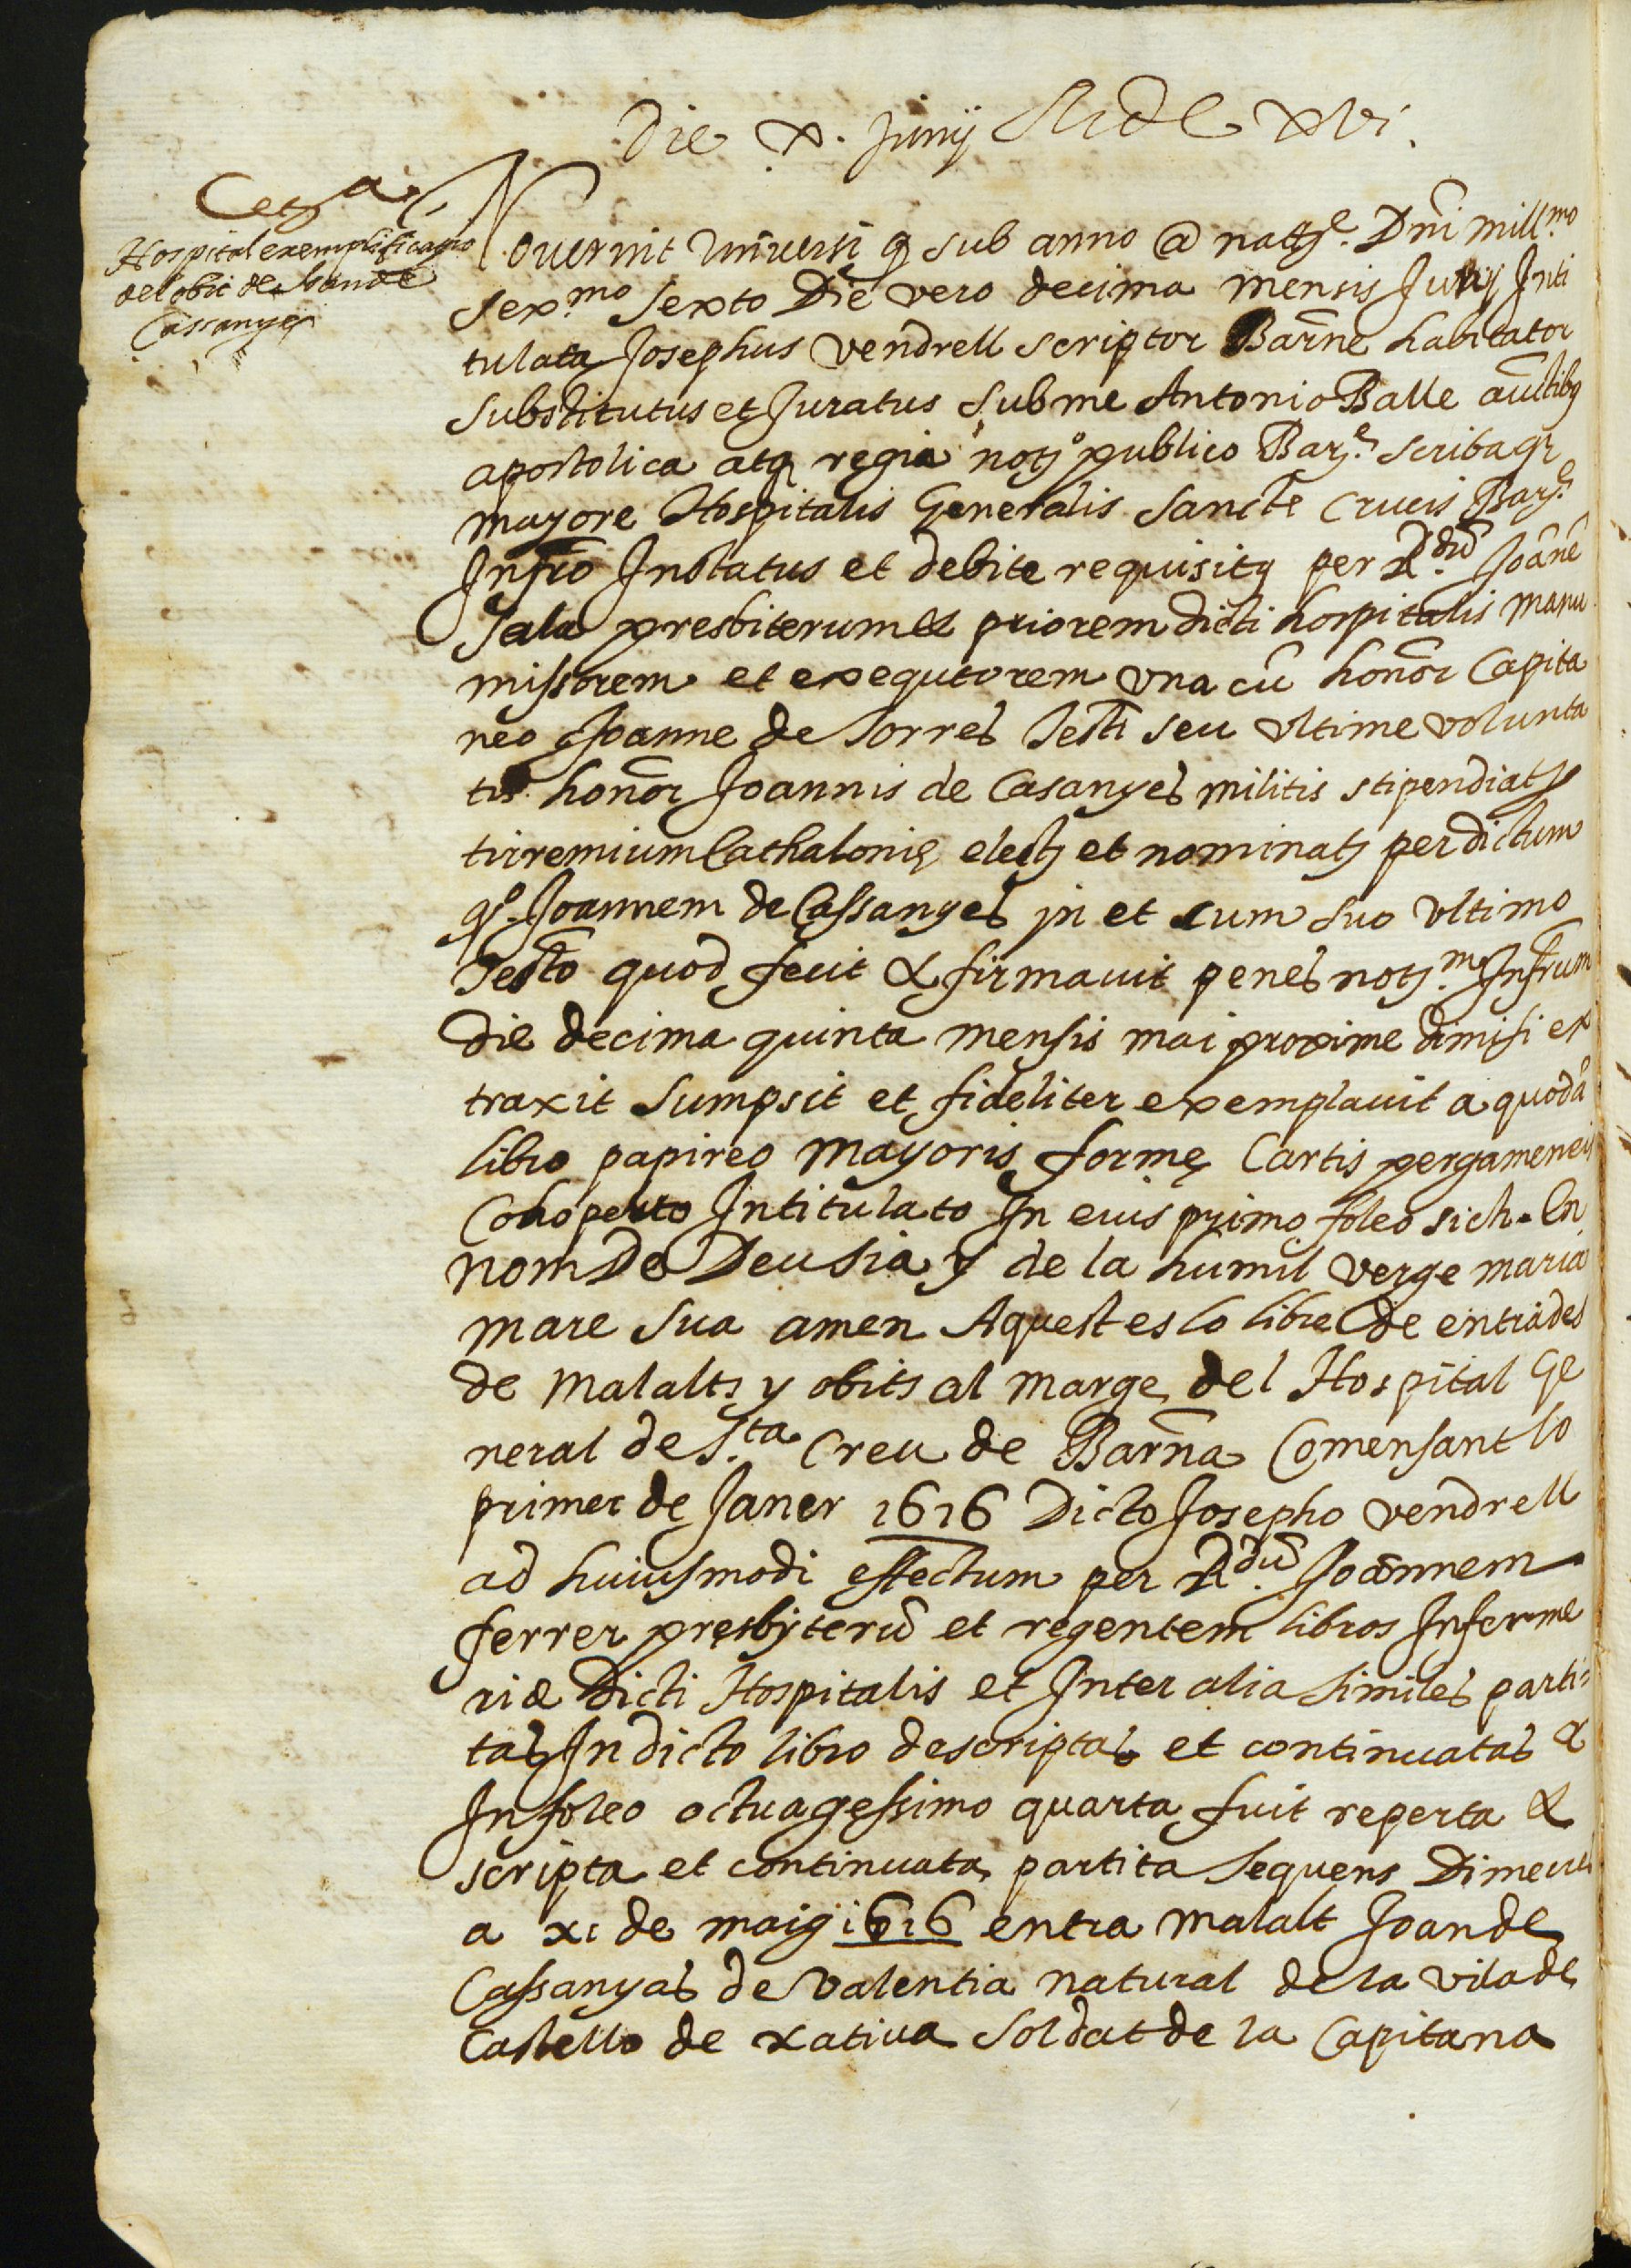 Die x. Junij MDC xvi.
Cet.ª
Hospital exemplificatio
del obit de Joan de
Cassanyes
Noverint Universi q sub anno @ natte. Dñi mill.mo
sex.mo sexto Die vero decima mensis Junij Inti
tulata Josephus vendrell scriptor Barñe habitator
substitutus et Juratus sub me Antonio Batlle auctibq
apostolica atq regia notº publico Barᵉ. scribaqz
mayore Hospitalis Generalis Sancte Crucis Barᵉ.
Infrõ Instatus et debite requisitq per R.dũ Joãne
Sala presbiterum et priorem dicti hospitalis manu
missorem et exequtorem una cũ honor Capita
neo Joanne de Torres Testi seu ultime volunta
tis honor Joannis de Casanyes militis stipendiatz
tirremium Cathaloniȩ electz et nominatz per dictum
qº. Joannem de Cassanyes in et cum suo ultimo
Testo quod fecit & firmavit penes not.m Infrum
die decima quinta mensis mai proxime dimisi ex
traxit sumpsit et fideliter exemplavit a quodã
libro papireo mayoris formȩ Cartis pergameneis
Cohoperto Intitulato In eius primo foleo sich. En
nom De Deu sia y de la humil verge maria
mare sua amen Aquest es lo libre de entrades
de malalts y obits al marge del Hospital Ge
neral de S.ta Creu de Barña Comensant lo
primer de Janer 1616 Dicto Josepho vendrell
ad huiusmodi effectum per R.dũ Joannem
ferrer presbyterũ et regentem libros Inferme
riæ Dicti Hospitalis et Inter alia similes parti-
tas In dicto libro descriptas et continuatas &
In foleo octuagessimo quarta fuit reperta &
scripta et continuata partita sequens Dimecres
a xi de maig 1616 entra malalt Joan de
Cassanyas de Valentia natural de la vila de
Castello de xativa soldat de la Capitana